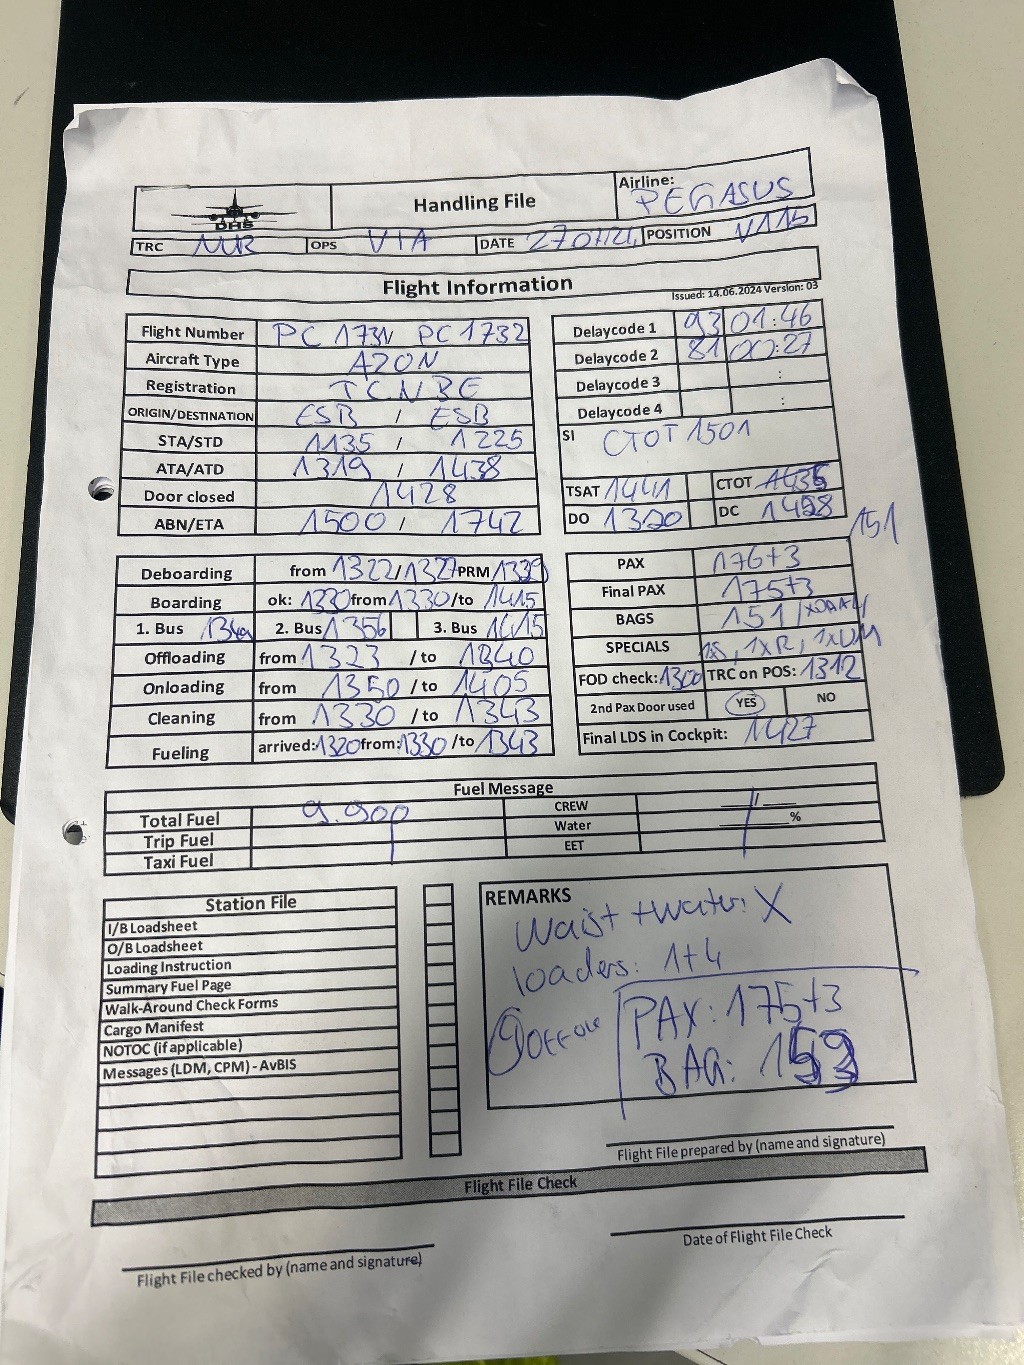 DHS
Handling File
Airline: PEGASUS
TRC NUR OPS VIA DATE POSITION V115
Flight Information
Issued: 14.06.2024 Version: 03
Flight Number PC 1731 PC 1732
Aircraft Type A20N
Registration TCNBE
ORIGIN/DESTINATION ESB / ESB
STA/STD 1135 / 1225
ATA/ATD 1319 / 1438
Door closed 1428
ABN/ETA 1500 / 1742
Delaycode 1 93 01:46
Delaycode 2 81 00:27
Delaycode 3 :
Delaycode 4 :
SI CTOT 1501
TSAT 1441 CTOT
DO 1320 DC 1428
Deboarding from 1322/1327 PRM 1339
Boarding ok: 1330 from 1330 /to 1415
1. Bus 2. Bus 1356 3. Bus 1415
Offloading from 1323 /to 1340
Onloading from 1350 /to 1405
Cleaning from 1330 /to 1343
Fueling arrived: 1320 from: 1330 /to 1343
151
PAX 176+3
Final PAX 175+3
BAGS 151
SPECIALS 1xR, 1xUM
FOD check: 1300 TRC on POS: 1312
2nd Pax Door used YES NO
Final LDS in Cockpit: 1427
Fuel Message
Total Fuel 9.900 CREW /
Trip Fuel Water %
Taxi Fuel EET
Station File
I/B Loadsheet
O/B Loadsheet
Loading Instruction
Summary Fuel Page
Walk-Around Check Forms
Cargo Manifest
NOTOC (if applicable)
Messages (LDM, CPM) - AvBIS
REMARKS
Waist + water: X
loaders: 1+4
PAX: 175+3
BAG:
Flight File prepared by (name and signature)
Flight File Check
Date of Flight File Check
Flight File checked by (name and signature)